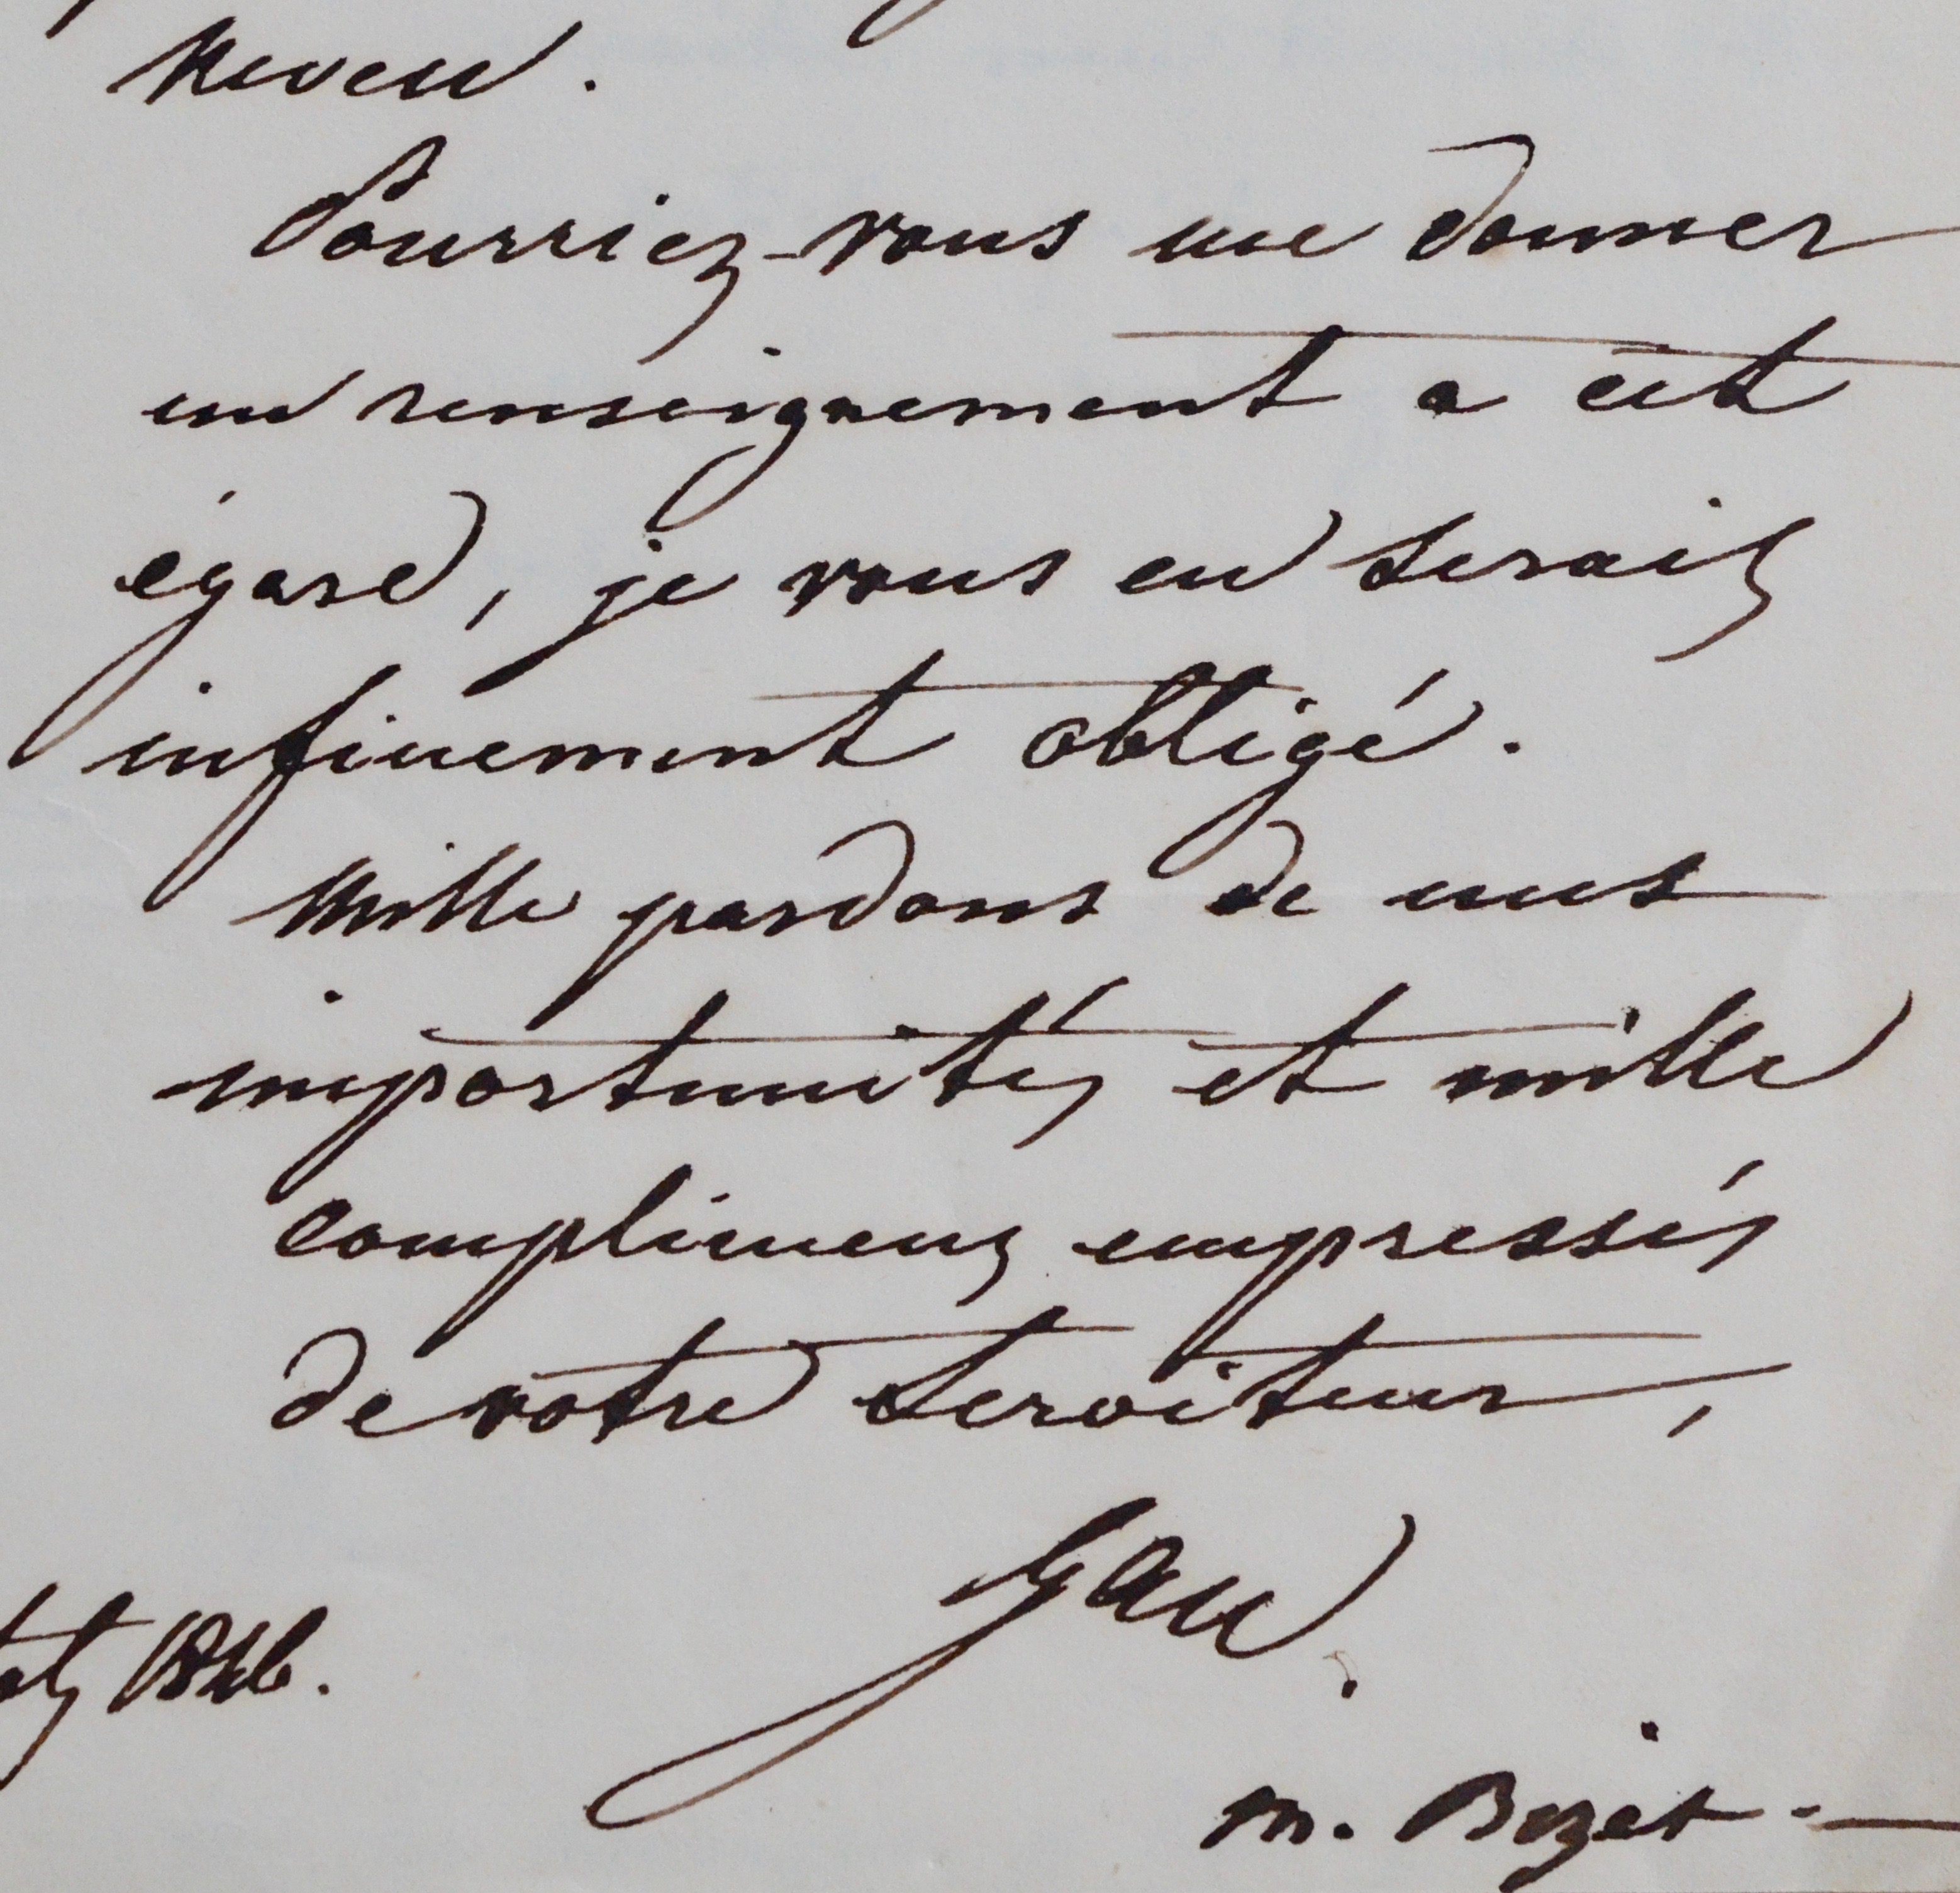 neveu.
Pourriez-vous me donner
un renseignement a cet
égard, je vous en serais
infiniment obligé.
Mille pardons de mes
importunités et mille
complimens empressés
de votre serviteur,
Gau.
1846.
m. Bizet